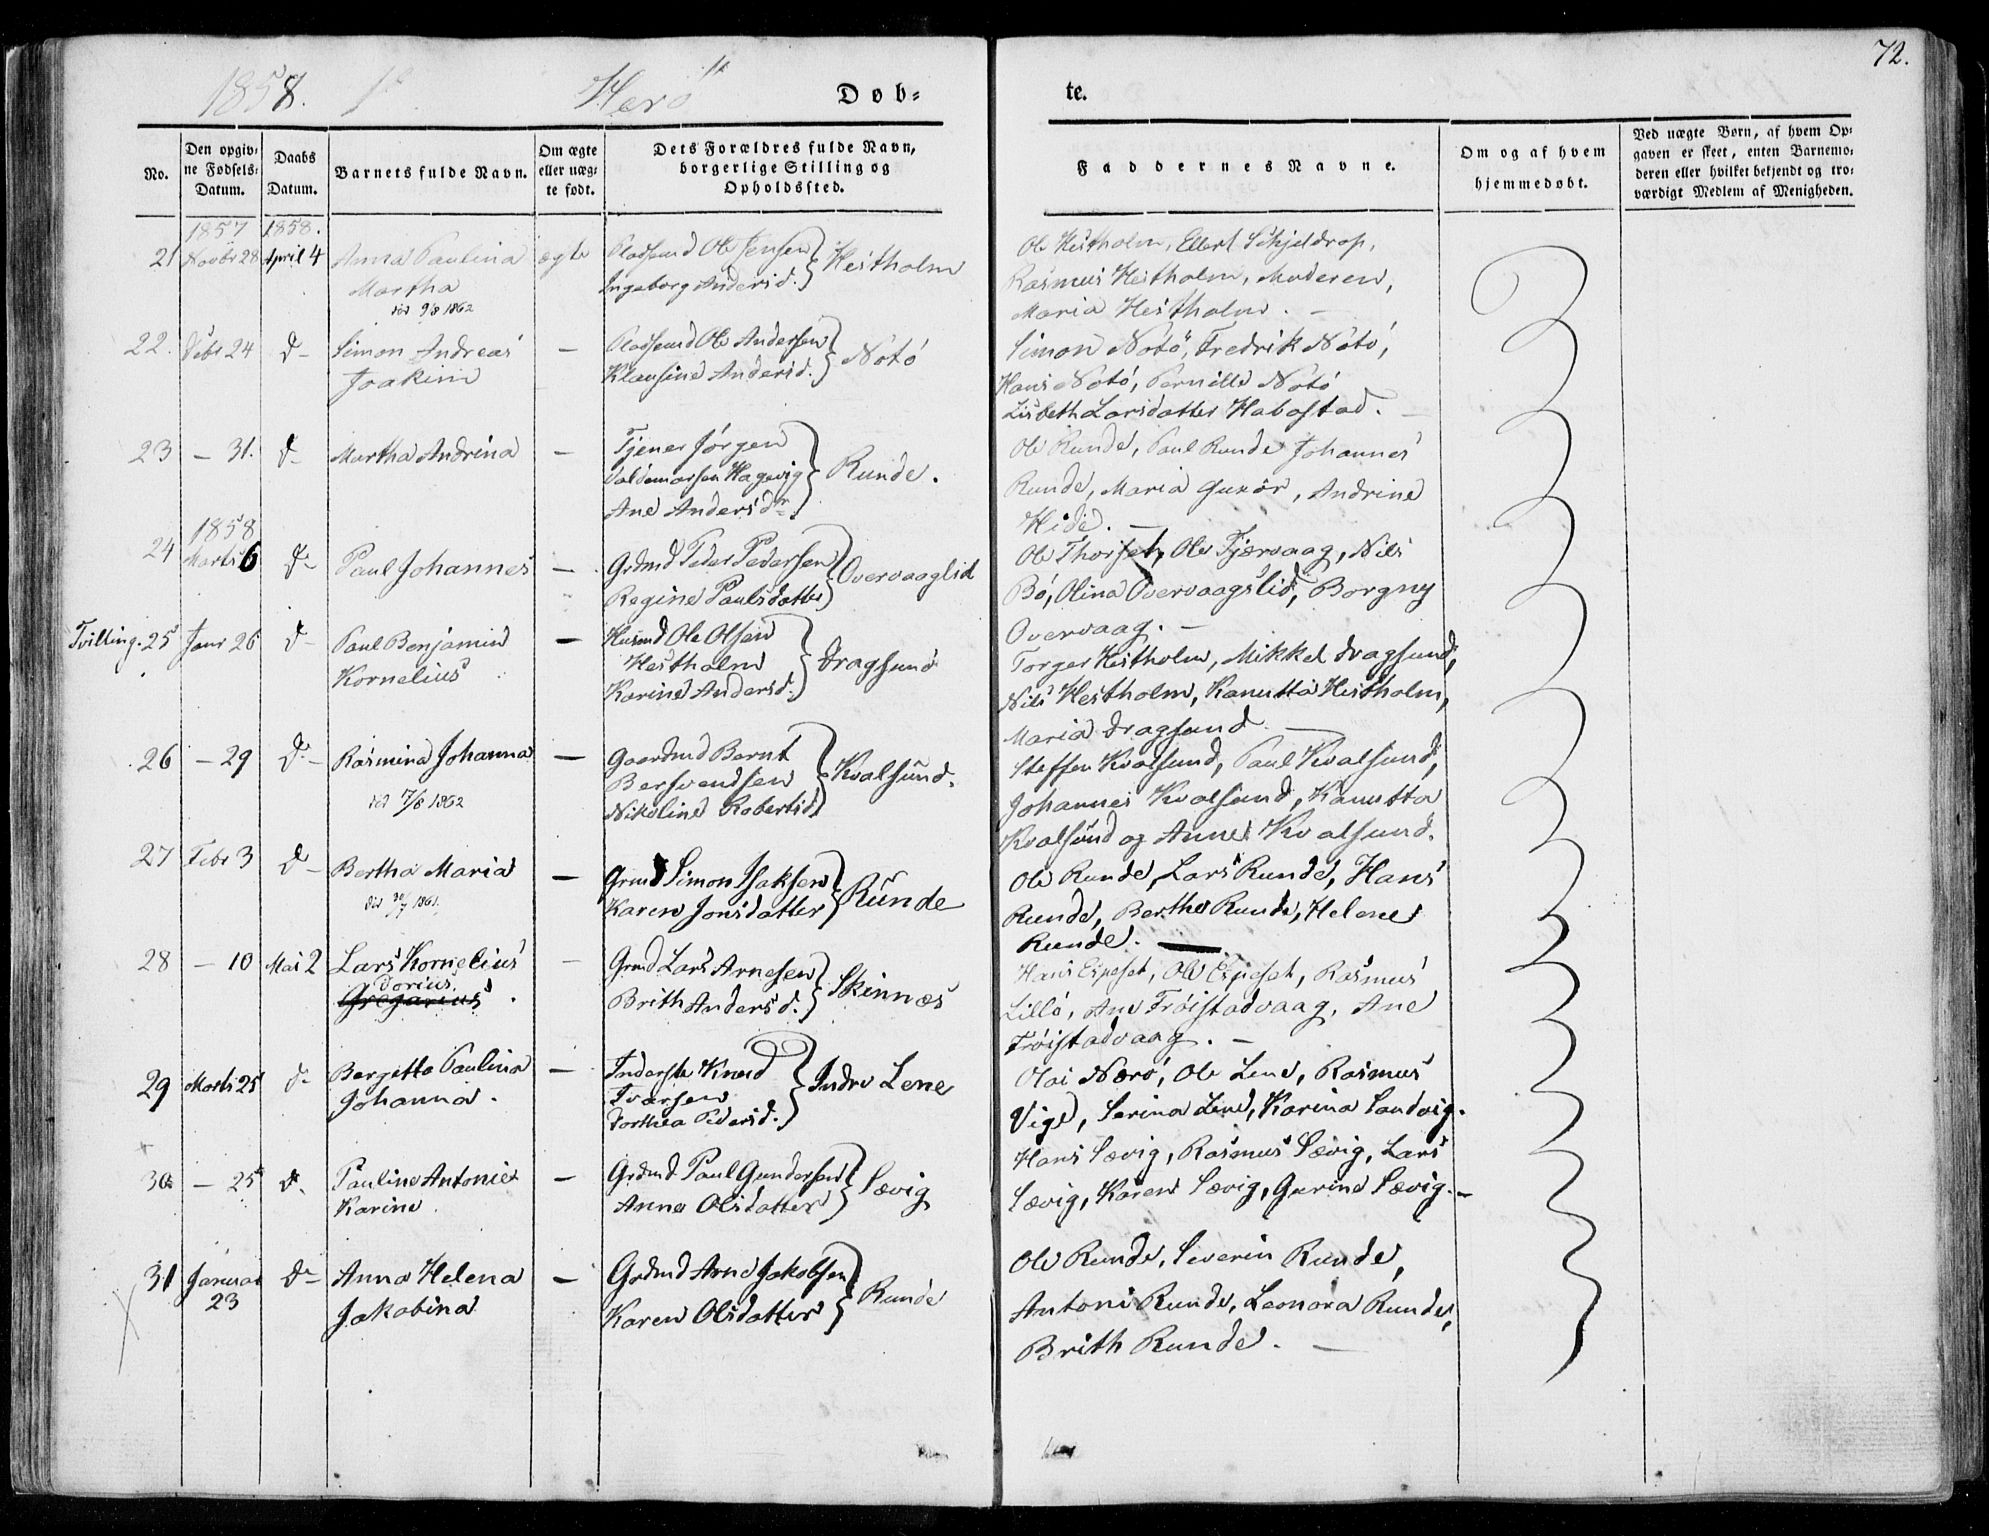 72.
1858. Herö
Døb-
te.
No.
Den opgiv-
ne Fødsels-
Datum.
Daabs
Datum.
Barnets fulde Navn.
Om ægte
eller uæg-
te født.
Dets Forældres fulde Navn,
borgerlige Stilling og
Opholdssted.
Faddernes Navne.
Om og af hvem
hjemmedøbt.
Ved uægte Børn, af hvem Op-
gaven er skeet, enten Barnemo-
deren eller hvilket bekjendt og tro-
værdigt Medlem af Menigheden.
1857 1858.
21 Novbr 28 April 4 Anna Paulina ægte Pladsmd Ole Jensen Hestholm
Martha Ingeborg Andersd.
død 9/8 1862
Ole Hestholm, Ellert Schjeldrop,
Rasmus Hestholm, Moderen,
Maria Hestholm. –
22. Debr 24 do Simon Andreas – Pladsmd Ole Andersen Notö
Joakim Klausine Andersd.
Simon Notö, Fredrik Notö,
Hans Notö, Pernille Notö
Lisbeth Larsdatter Habostad. –
23 – 31. do Martha Andrina – Tjener Jörgen
Valdemarsen Hagevig Runde.
Ane Andersdr
Ole Runde, Paul Runde Johannes
Runde, Maria Gurör, Andrine
Hide. –
1858
24 Marts 6 do Paul Johannes – Grdmd Peder Pedersen Overvaaglid
Regine Paulsdatter
Ole Thorset, Ole Tjærvaag, Nils
Bö, Olina Overvaagslid, Borgny
Overvaag. –
Tvilling. 25 Janr 26 do Paul Benjamin – Husmd Ole Olsen
Kornelius Hestholm Dragsund
Karine Andersd.
Torger Hestholm, Mikkel Dragsund,
Nils Hestholm, Kanutta Hestholm,
Maria Dragsund –
26 – 29 do Rasmina Johanna – Gaardmd Bernt
Bersvendsen Kvalsund.
død 7/8 1862 Nikoline Robertsd
Steffen Kvalsund, Paul Kvalsund,
Johannes Kvalsund, Kanutta
Kvalsund og Anne Kvalsund.
27 Febr 3 do Bertha Maria – Grmd Simon Isaksen Runde
død 30/7 1861. Karen Jonsdatter
Ole Runde, Lars Runde, Hans
Runde, Berthe Runde, Helene
Runde. –
28 – 10 Mai 2 Lars Kornelius – Grmd Lars Arnesen Skinnæs
dorius.
Gregorius Brith Andersd.
Hans Espeset, Ole Espeset, Rasmus
Lillö, Ane Fröistadvaag, Ane
Fröistadvaag. –
29 Marts 25 do Bergitta Paulina – Inderste Knud
Johanna. Ivarsen Indre Lene
Dorthea Pedersd.
Olai Nærö, Ole Lene, Rasmus
Vige, Serina Lene, Karina Sandvig.
30 – 25 do Pauline Antonie – Grdmd Paul Gundersen Sævig
Karine Anne Olsdatter
Hans Sævig, Rasmus Sævig, Lars
Sævig, Karen Sævig, Gurine Sævig. –
31 Januar do Anna Helena – Grdmd Arne Jakobsen Runde
23 Jakobina Karen Olsdatter
Ole Runde, Severin Runde,
Antoni Runde, Leonora Runde,
Brith Runde. –